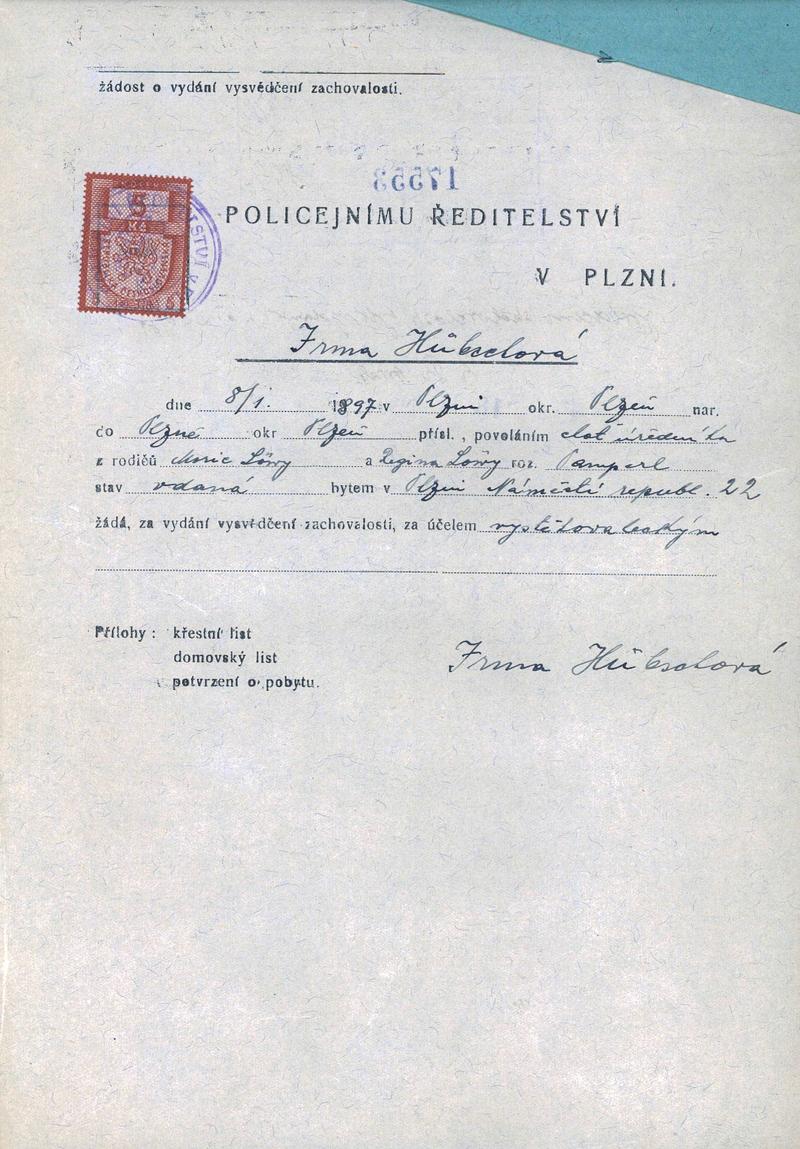 žádost o vydání vysvědčení zachovalosti.
17553
5
Kč
POLICEJNÍMU ŘEDITELSTVÍ
V PLZNI.
Irma Hübschová
dne 8/1. 1897 v Plzni okr. Plzeň nar.
do Plzně okr Plzeň přísl., povoláním choť úředníka
z rodičů Moric Löwy a Regina Löwy roz. Pamperl
stav vdaná bytem v Plzni Náměstí republ. 22
žádá, za vydání vysvědčení zachovalosti, za účelem vystěhovaleckým
Přílohy: křestní list
domovský list
potvrzení o pobytu.
Irma Hübschová